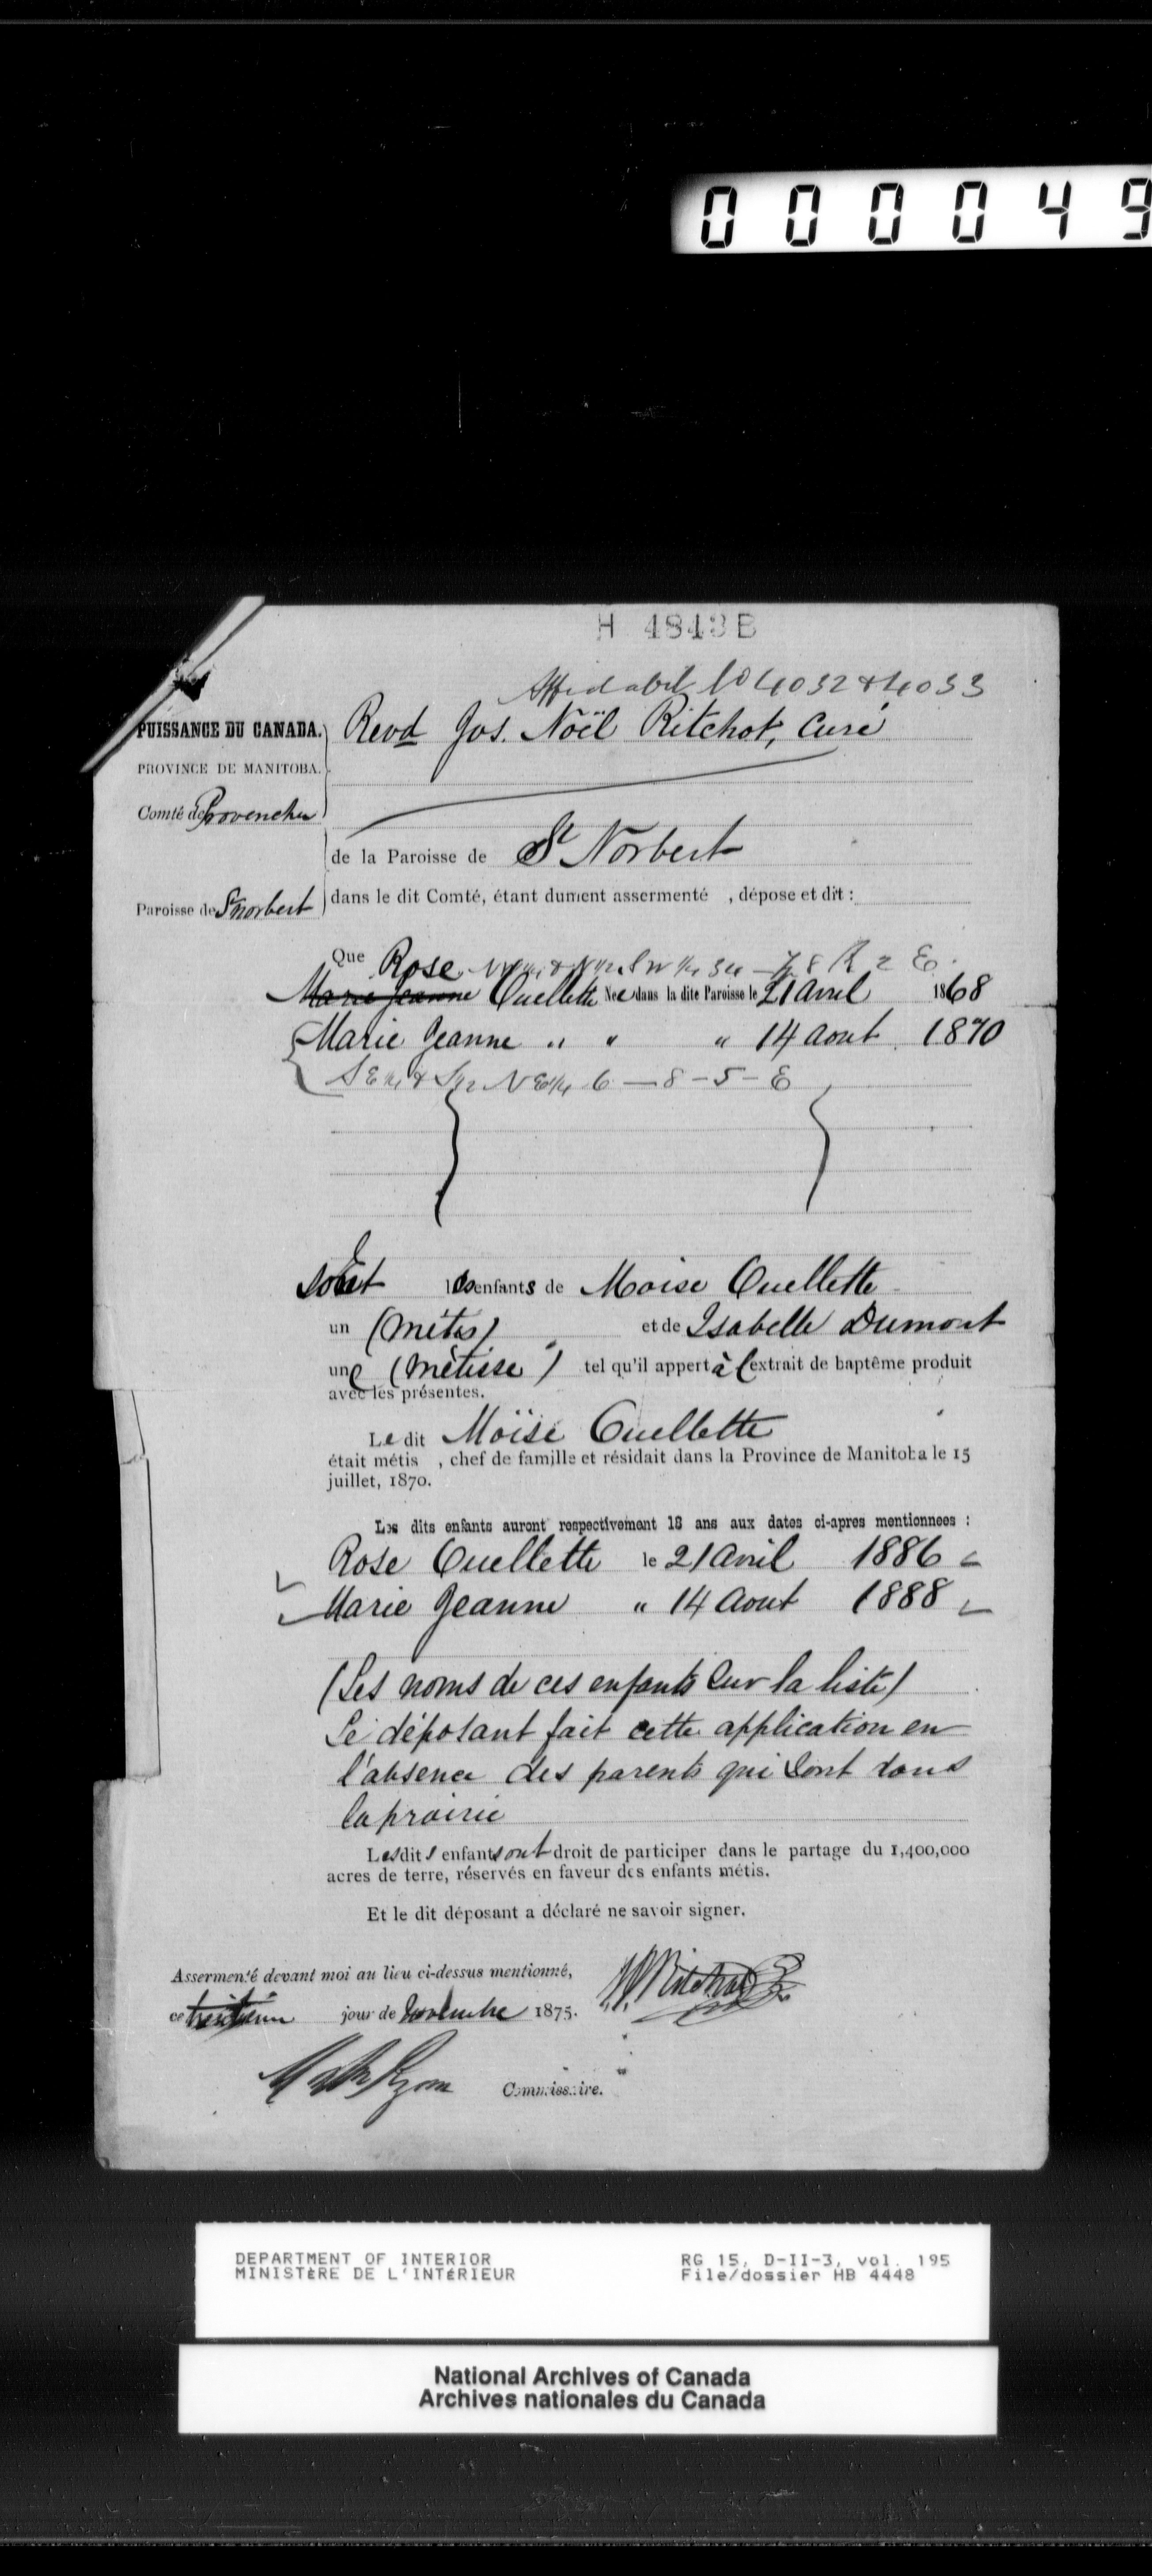 000049
H 4843 B
Affidavit No 4032 & 4033
PUISSANCE DU CANADA.
Revd Jos. Noël Ritchot, Curé
PROVINCE DE MANITOBA.
Comté de Provencher
de la Paroisse de St Norbert
Paroisse de St norbert
dans le dit Comté, étant dument assermenté , dépose et dit :
Que Rose SW 1/4 34 - 8 R 2 E.
Marie Jeanne Ouellette Née dans la dite Paroisse le 21 avril 1868
Marie Jeanne " " " 14 aout 1870
SE 1/4 & S 1/2 NE 1/4 6 - 8 - 5 - E
sont les enfants de Moise Ouellette
un (métis) et de Isabelle Dumont
une (métisse) tel qu'il appert à l'extrait de baptême produit
avec les présentes.
Le dit Moïse Ouellette
était métis , chef de famille et résidait dans la Province de Manitoba le 15
juillet, 1870.
Les dits enfants auront respectivement 18 ans aux dates ci-apres mentionnees :
Rose Ouellette le 21 avril 1886
Marie Jeanne " 14 aout 1888
(Les noms de ces enfants sur la liste)
Le déposant fait cette application en
l'absence des parents qui sont dans
la prairie
Les dits enfants ont droit de participer dans le partage du 1,400,000
acres de terre, réservés en faveur des enfants métis.
Et le dit déposant a déclaré ne savoir signer.
Assermenté devant moi au lieu ci-dessus mentionné,
ce jour de Novembre 1875.
NJ Ritchot Ptre
Commissaire.
DEPARTMENT OF INTERIOR
MINISTÈRE DE L'INTÉRIEUR
RG 15, D-II-3, vol. 195
File/dossier HB 4448
National Archives of Canada
Archives nationales du Canada